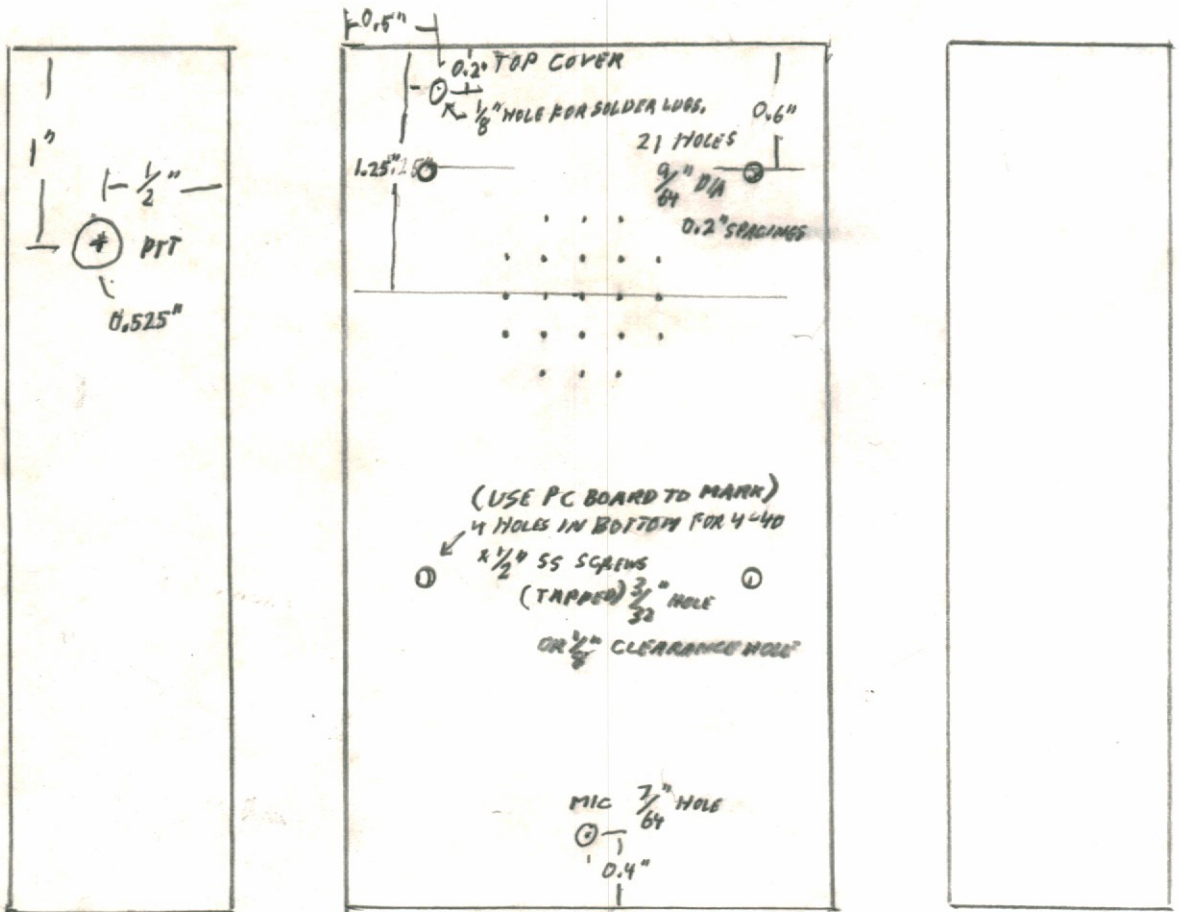 1"
1/2"
PTT
0.525"
0.5"
0.2" TOP COVER
1/8" HOLE FOR SOLDER LUGS.
0.6"
1.25"
21 HOLES
9/64" DIA
0.2" SPACINGS
(USE PC BOARD TO MARK)
4 HOLES IN BOTTOM FOR 4-40
x 1/2" SS SCREWS
(TAPPED) 3/32" HOLE
OR 1/8" CLEARANCE HOLE
MIC 7/64" HOLE
0.4"